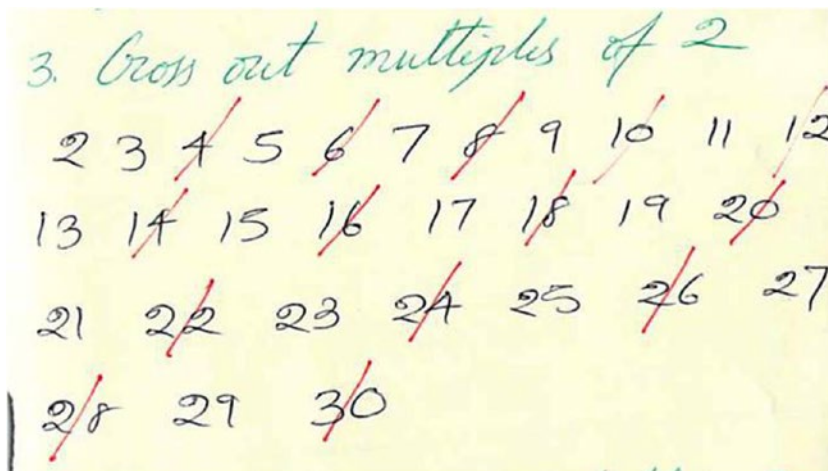 3. Cross out multiples of 2
2 3 4 5 6 7 8 9 10 11 12
13 14 15 16 17 18 19 20
21 22 23 24 25 26 27
28 29 30